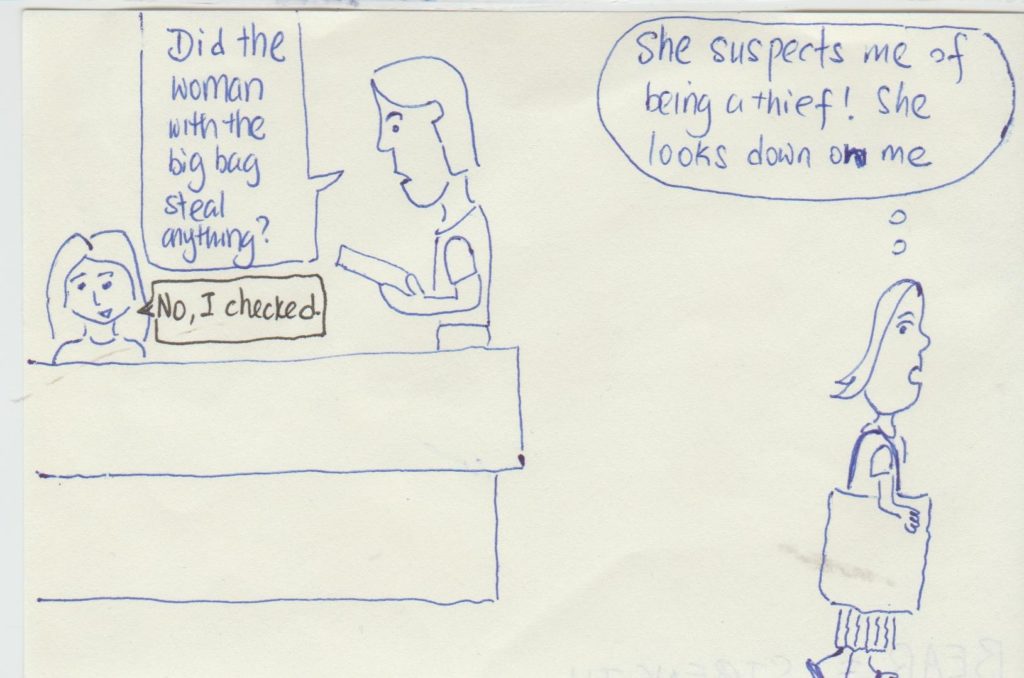 Did the
woman
with the
big bag
steal
anything?
No, I checked.
She suspects me of
being a thief! She
looks down on me